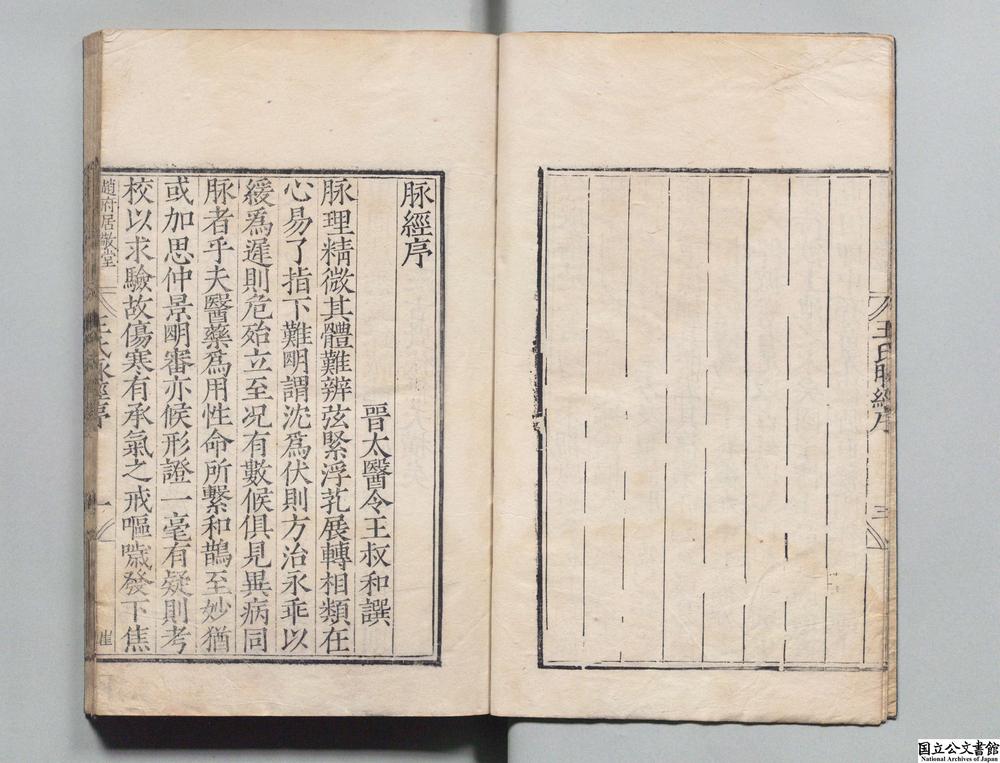 王氏脉經序
三
脉經序
晉太醫令王叔和譔
脉理精微其體難辨弦緊浮芤展轉相類在
心易了指下難明謂沈爲伏則方治永乖以
緩爲遲則危殆立至况有數候俱見異病同
脉者乎夫醫藥爲用性命所繫和鵲至妙猶
或加思仲景明審亦候形證一毫有疑則考
校以求驗故傷寒有承氣之戒嘔噦發下焦
趙府居敬堂
王氏脉經序
一
崔
国立公文書館
National Archives of Japan